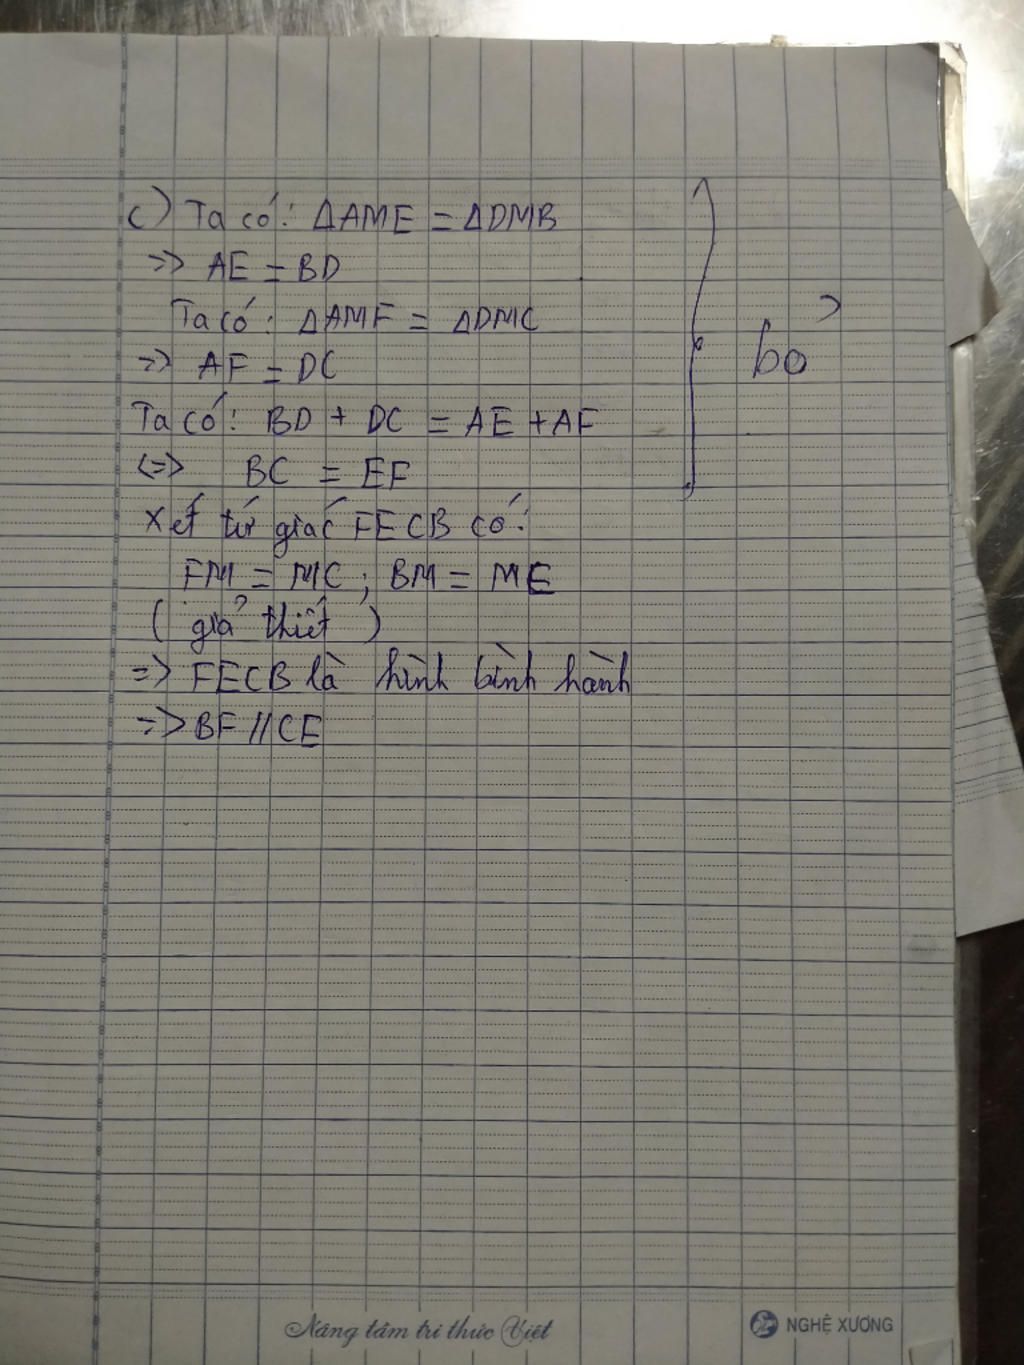 c) Ta có: ΔAME = ΔDMB
=> AE = BD
Ta có: ΔAMF = ΔDMC
=> AF = DC
Ta có: BD + DC = AE + AF
<=> BC = EF
bỏ
Xét tứ giác FECB có:
FM = MC ; BM = ME
( giả thiết )
=> FECB là hình bình hành
=> BF // CE
Nâng tầm tri thức Việt
NGHỆ XƯƠNG